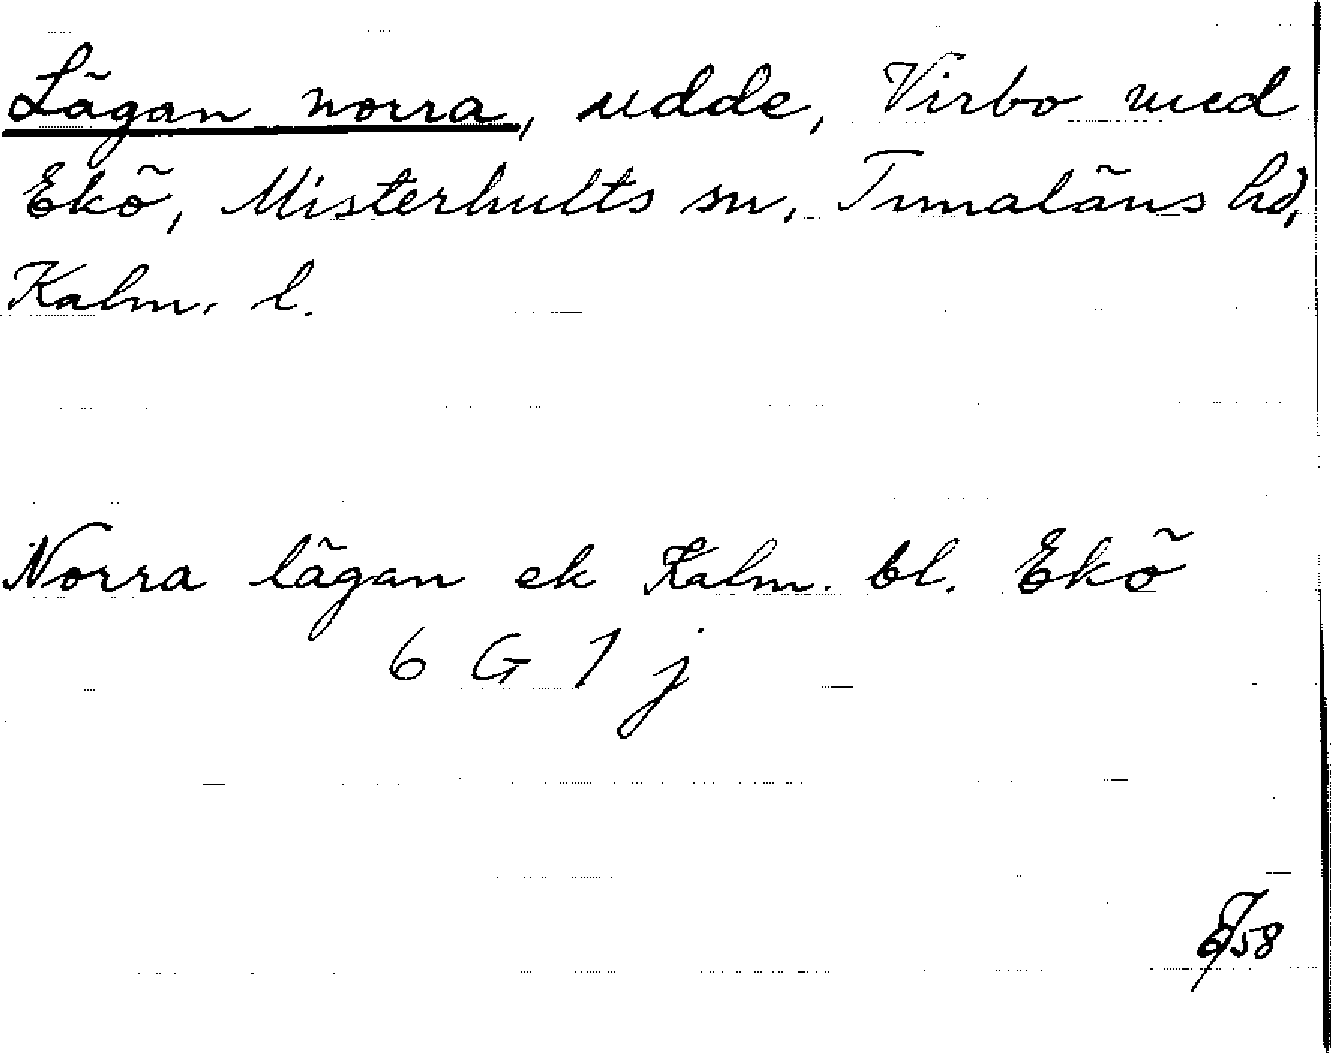 Lägan norra, udde, Virbo med
Ekö, Misterhults sn, Tunaläns hd,
Kalm. l.
Norra lägan ek Kalm. bl. Ekö
6 G 7 j